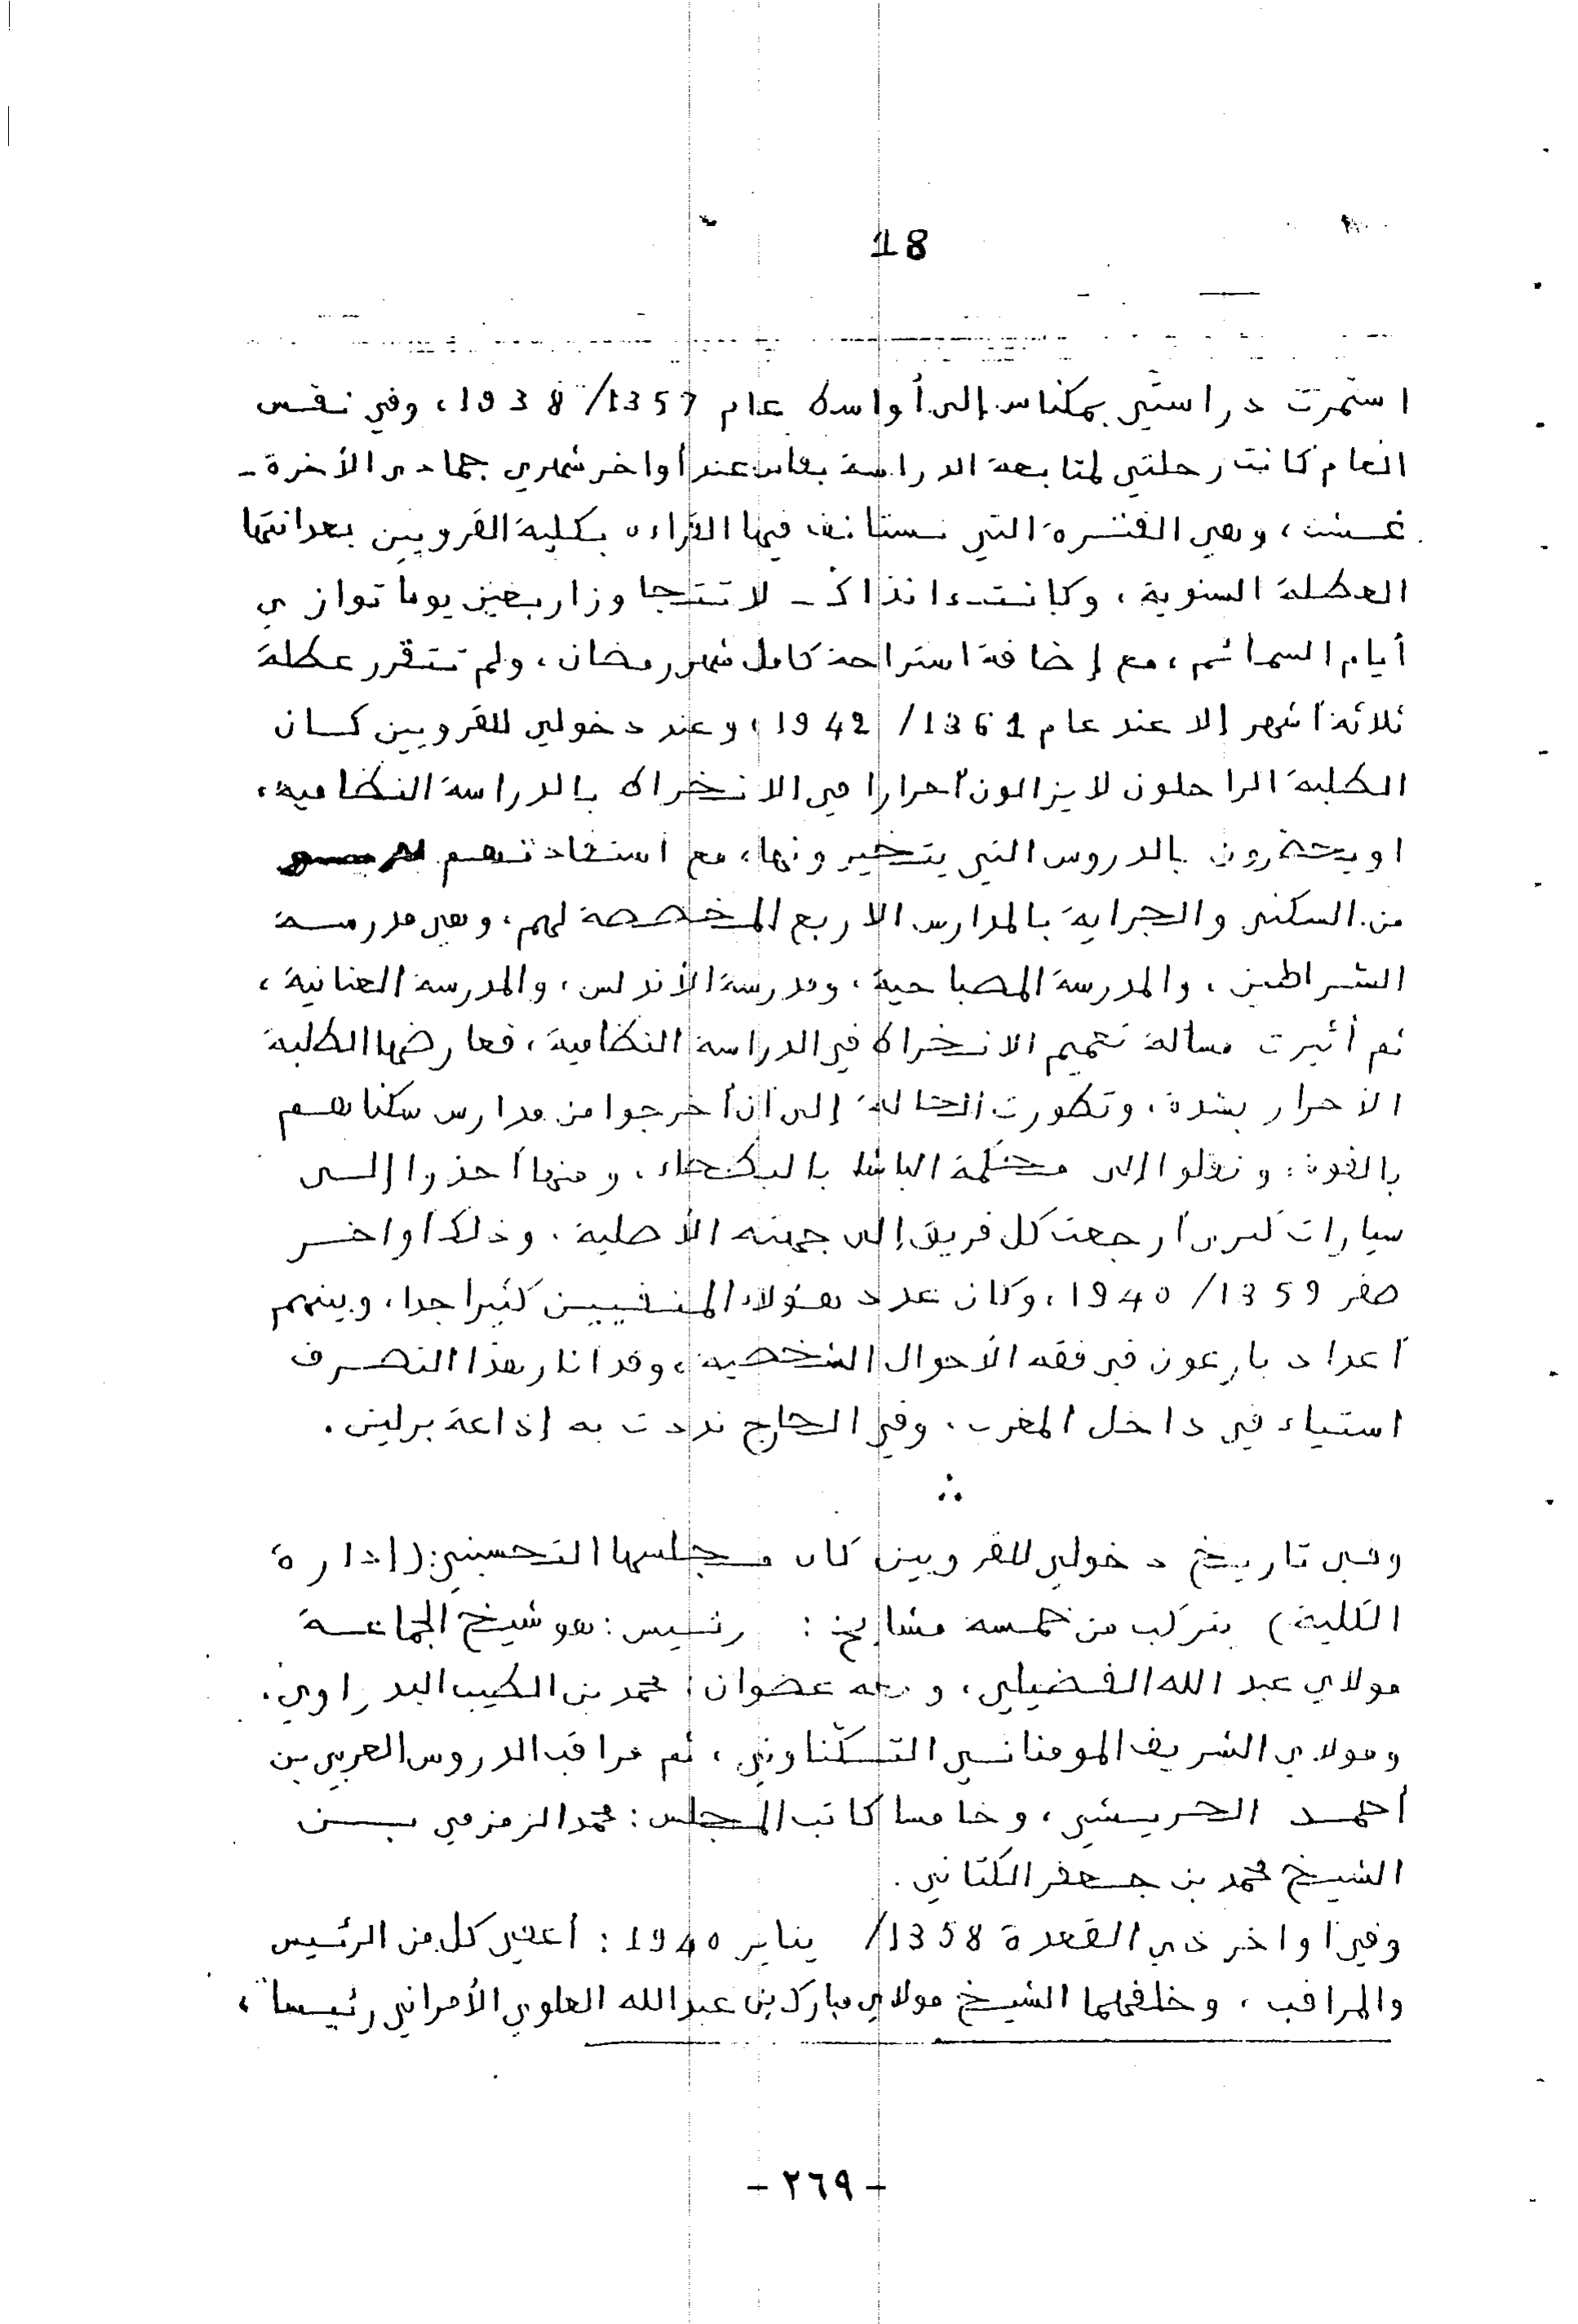 18
استمرت دراستي بمكناس إلى أواسط عام 1357/ 1938، وفي نفس
العام كانت رحلتي لمتابعة الدراسة بفاس عند أواخر شهري جمادى الأخرة ـ
غشت، وهي الفترة التي تستأنف فيها القراءة بكلية القرويين بعد انتها
العطلة السنوية، وكانت ءانذاك ـ لا تتجاوز اربعين يوما توازي
أيام السمائم، مع إضافة استراحة كامل شهر رمضان، ولم تتقرر عطلة
ثلاثة أشهر إلا عند عام 1361/ 1942، وعند دخولي للقرويين كان
الطلبة الراحلون لا يزالون أحرارا في الانخراط بالدراسة النظامية،
او يحضرون بالدروس التي يتخيرونها، مع استفادتهم
من السكنى والجراية بالمدارس الاربع المخصصة لهم، وهي مدرسة
الشراطين، والمدرسة المصباحية، ومدرسة الأندلس، والمدرسة العنانية،
ثم أثيرت مسألة تتميم الانخراط في الدراسة النظامية، فعارضها الطلبة
الأحرار بشدة، وتطورت الحالة إلى أن أخرجوا من مدارس سكناهم
بالقوة، ونقلوا إلى محكمة الباشا بالبطحاء، ومنها أخذوا إلى
سيارات كبرى أرجعت كل فريق إلى جهته الأصلية، وذلك أواخر
صفر 1359/ 1940، وكان عدد هؤلاء المنفيين كثيرا جدا، وبينهم
أعداد بارعون في فقه الأحوال الشخصية، وقد اثار هذا التصرف
استياء في داخل المغرب، وفي الخارج نددت به إذاعة برلين.
∴
وفي تاريخ دخولي للقرويين كان مجلسها التحسيني: (إدارة
الكلية) يتركب من خمسة مشايخ: رئيس: هو شيخ الجماعة
مولاي عبد الله الفضيلي، ومعه عضوان: محمد بن الطيب البدراوي،
ومولاي الشريف المومناني التكناوتي، ثم مراقب الدروس العربي بن
أحمد الحريشي، وخامسا كاتب المجلس: محمد الزمزمي بن
الشيخ محمد بن جعفر الكتاني.
وفي أواخر ذي القعدة 1358/ يناير 1940: أعفي كل من الرئيس
والمراقب، وخلفهما الشيخ مولاي مبارك بن عبد الله العلوي الأمراني رئيسا،
- ٢٦٩ -